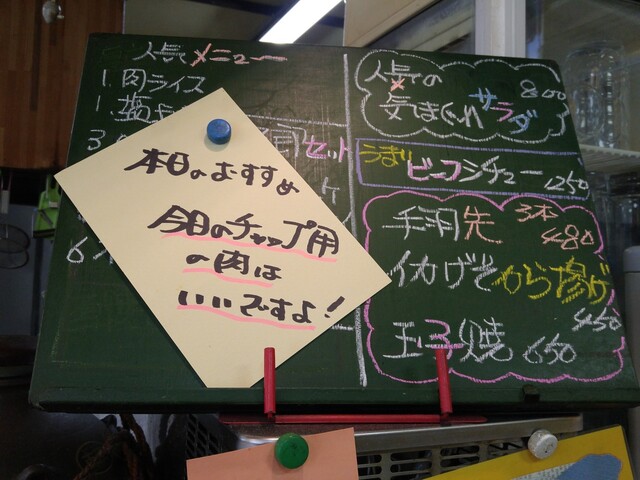 人気メニュー
1. 肉ライス
1.
3.
セット
6
本日のおすすめ
今日のチャップ用
の肉は
いいですよ!
人気の
気まぐれサラダ
800
うまい ビーフシチュー 1250
手羽先 3本
480
イカげそから揚げ
450
玉子焼 650